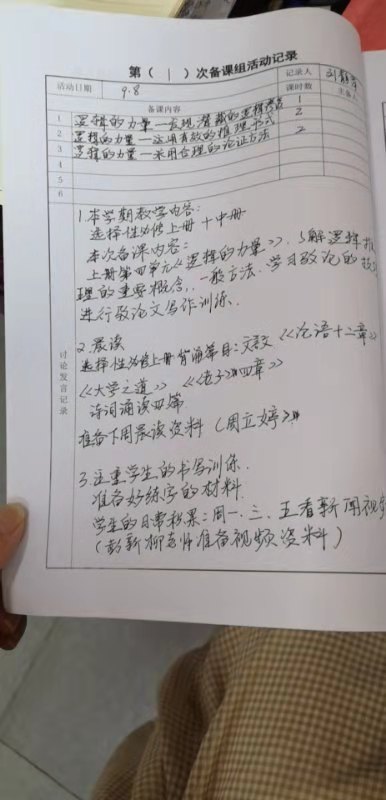 第（ 1 ）次备课组活动记录
活动日期 9.8 记录人 刘
备课内容 课时数 主备人
1 逻辑的力量—发现潜藏的逻辑 1
2 逻辑的力量—运用有效的推理形式 2
3 逻辑的力量—采用合理的论证方法 2
4
5
6
讨论发言记录
1.本学期教学内容：
选择性必修上册 + 中册
本次备课内容：
上册第四单元《逻辑的力量》、了解逻辑推
理的重要概念，一般方法、学习驳论的技
进行驳论文写作训练．
2.晨读
选择性必修上册背诵篇目：文言《论语十二章》
《大学之道》 《老子》四章》
诗词诵读四篇
准备下周晨读资料（周立婷）
3.注重学生的书写训练．
准备好练字的材料
学生的日常积累：周一、三、五看新闻视
（彭新柳老师准备视频资料）